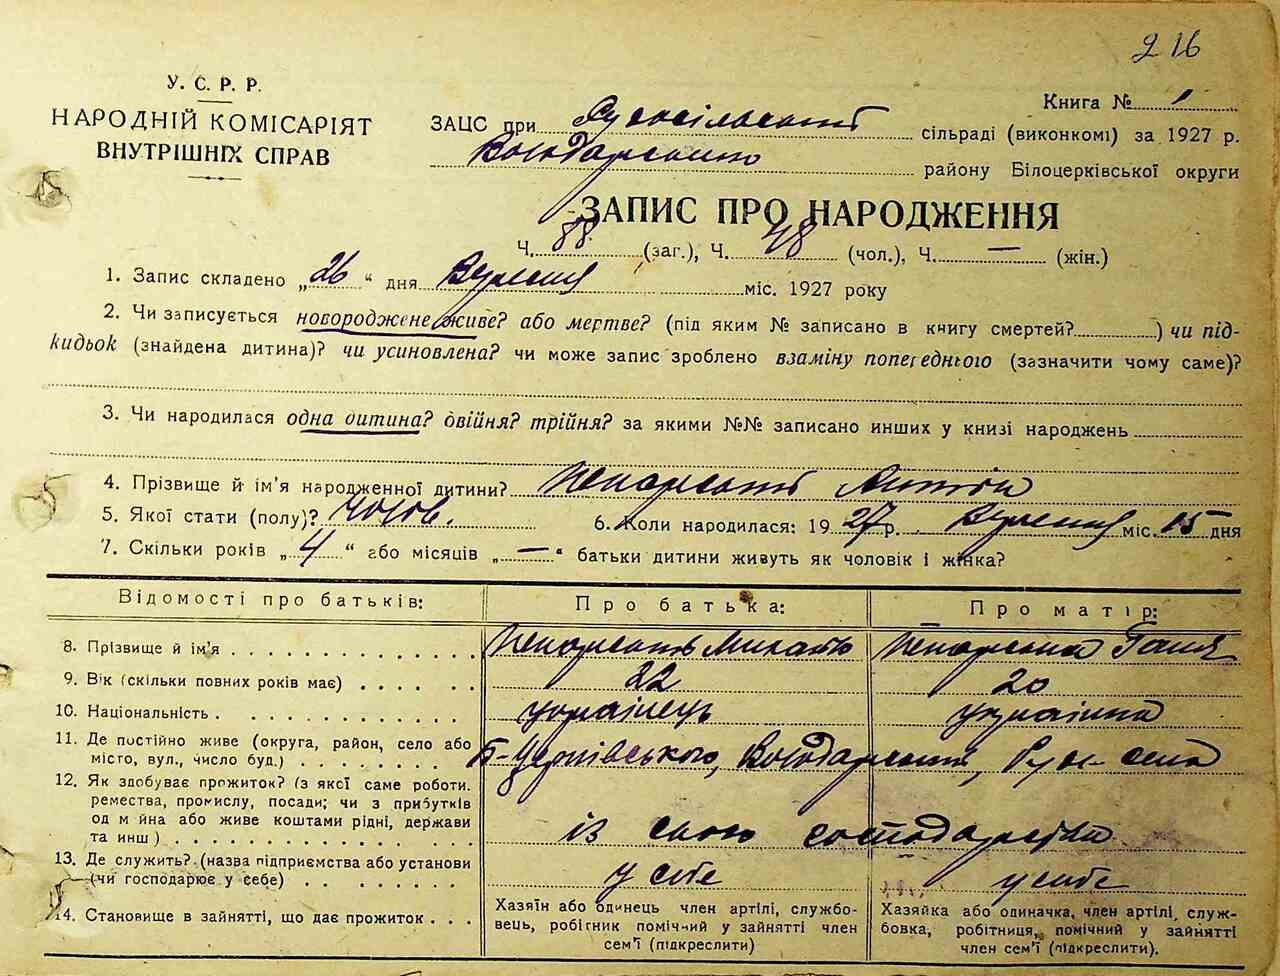 216
У. С. Р. Р.
НАРОДНІЙ КОМІСАРІЯТ
ВНУТРІШНІХ СПРАВ
Книга № 1
ЗАЦС при сільраді (виконкомі) за 1927 р.
Володарського району Білоцерківської округи
ЗАПИС ПРО НАРОДЖЕННЯ
Ч. 88 (заг.), Ч. 48 (чол.), Ч. — (жін.)
1. Запис складено „26“ дня Вересня міс. 1927 року
2. Чи записується новороджене живе? або мертве? (під яким № записано в книгу смертей? ) чи під-
кидьок (знайдена дитина)? чи усиновлена? чи може запис зроблено взаміну попереднього (зазначити чому саме)?
3. Чи народилася одна дитина? двійня? трійня? за якими №№ записано инших у книзі народжень
4. Прізвище й ім'я народженної дитини? Антон
5. Якої стати (полу)? чолов. 6. Коли народилася: 1927 р. Вересня міс. 15 дня
7. Скільки років „4“ або місяців „—“ батьки дитини живуть як чоловік і жінка?
Відомості про батьків: Про батька: Про матір:
8. Прізвище й ім'я Михайло Ганя
9. Вік (скільки повних років має) 22 20
10. Національність українець українка
11. Де постійно живе (округа, район, село або
місто, вул., число буд.) Б-Церківського, Володарський,
12. Як здобуває прожиток? (з яксї саме роботи.
ремества, промислу, посади; чи з прибутків
од м йна або живе коштами рідні, держави
та инш ) із свого господарства
13. Де служить? (назва підприємства або установи
(чи господарює у себе) у себе у себе
14. Становище в зайнятті, що дає прожиток
Хазяїн або одинець член артілі, службо-
вець, робітник помічний у зайнятті член
сем'ї (підкреслити)
Хазяйка або одиначка, член артілі, служ-
бовка, робітниця, помічний у зайнятті
член сем'ї (підкреслити).